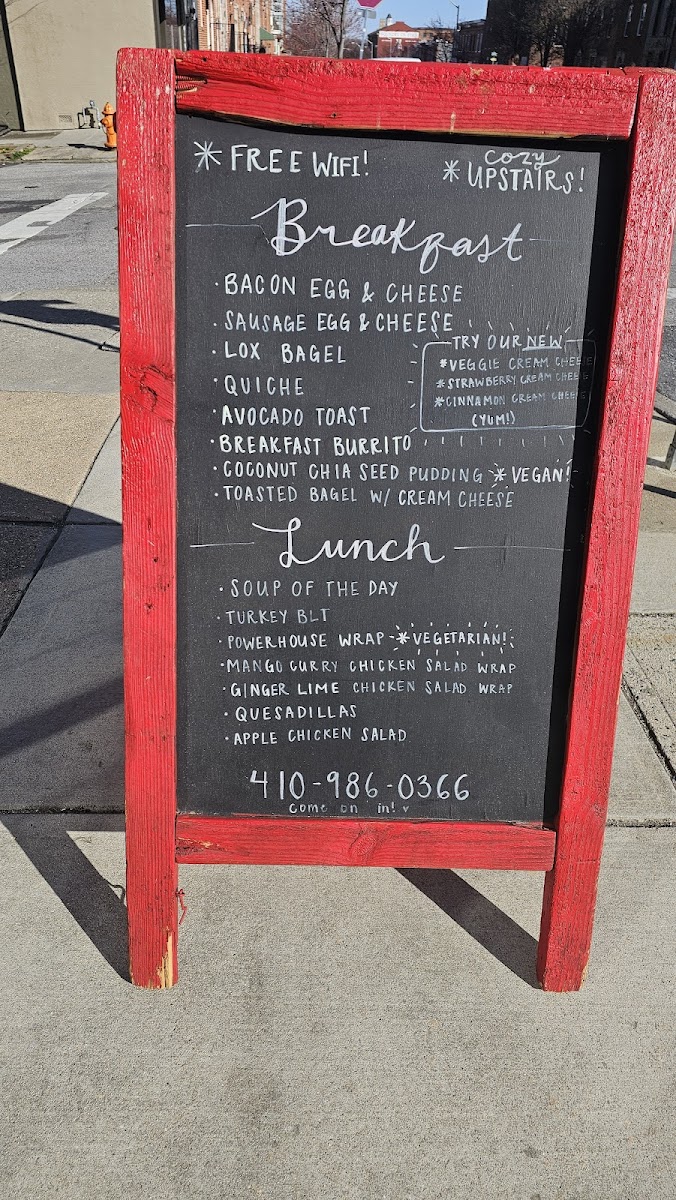 * FREE WIFI!
* COZY UPSTAIRS!
Breakfast
· BACON EGG & CHEESE
· SAUSAGE EGG & CHEESE
· LOX BAGEL
· QUICHE
· AVOCADO TOAST
· BREAKFAST BURRITO
· COCONUT CHIA SEED PUDDING * VEGAN!
· TOASTED BAGEL W/ CREAM CHEESE
TRY OUR NEW
* VEGGIE CREAM CHEESE
* STRAWBERRY CREAM CHEESE
* CINNAMON CREAM CHEESE
(YUM!)
Lunch
· SOUP OF THE DAY
· TURKEY BLT
· POWERHOUSE WRAP - * VEGETARIAN!
· MANGO CURRY CHICKEN SALAD WRAP
· GINGER LIME CHICKEN SALAD WRAP
· QUESADILLAS
· APPLE CHICKEN SALAD
410-986-0366
come on in! ♥